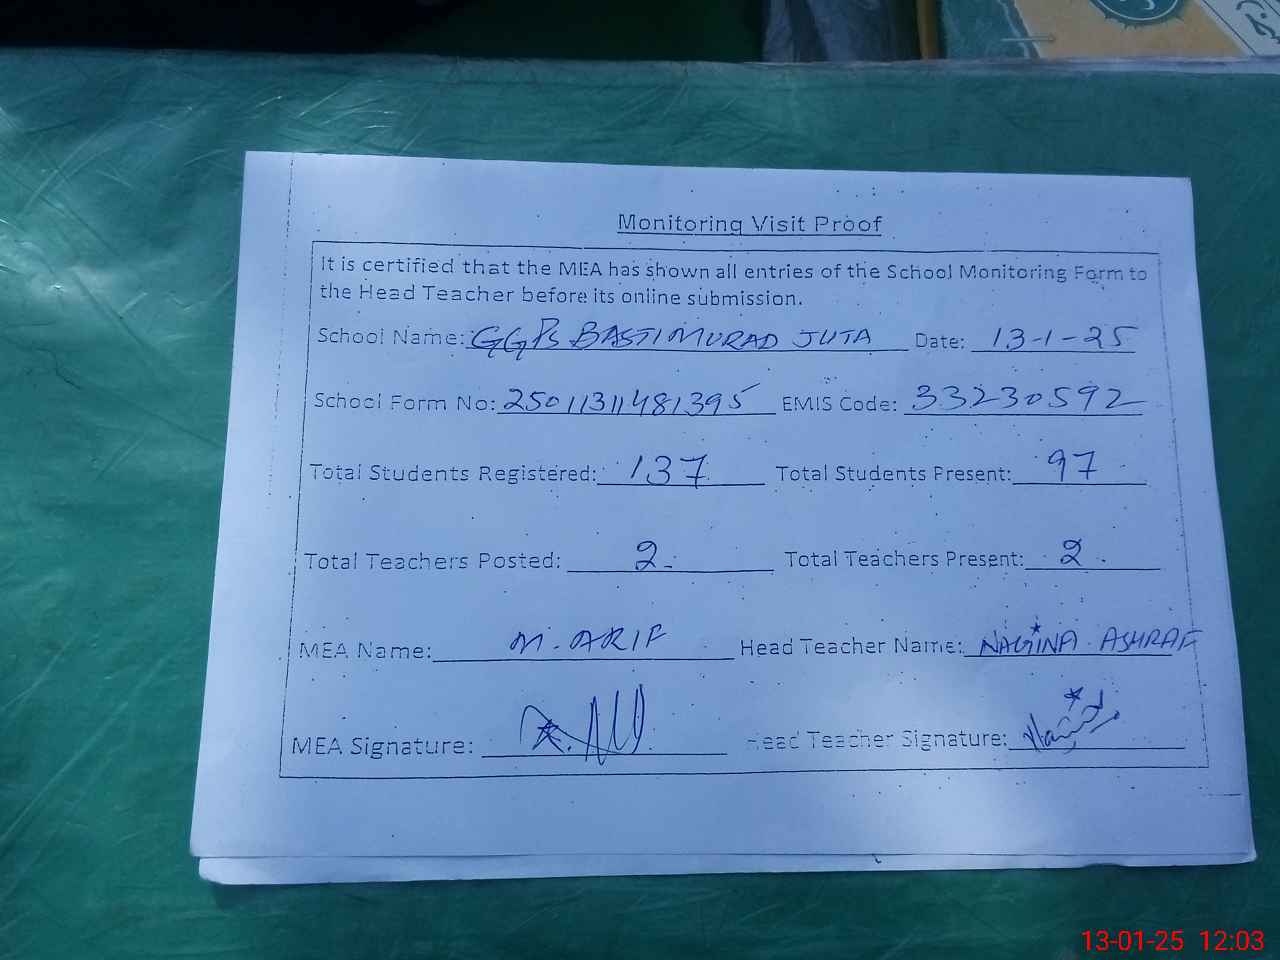 Monitoring Visit Proof
It is certified that the MEA has shown all entries of the School Monitoring Form to
the Head Teacher before its online submission.
School Name: GGPS BASTI MURAD JUTA Date: 13-1-25
School Form No: 25011311481395 EMIS Code: 33230592
Total Students Registered: 137 Total Students Present: 97
Total Teachers Posted: 2 Total Teachers Present: 2
MEA Name: M. ARIF Head Teacher Name: NAGINA ASHRAF
MEA Signature: Head Teacher Signature:
13-01-25 12:03